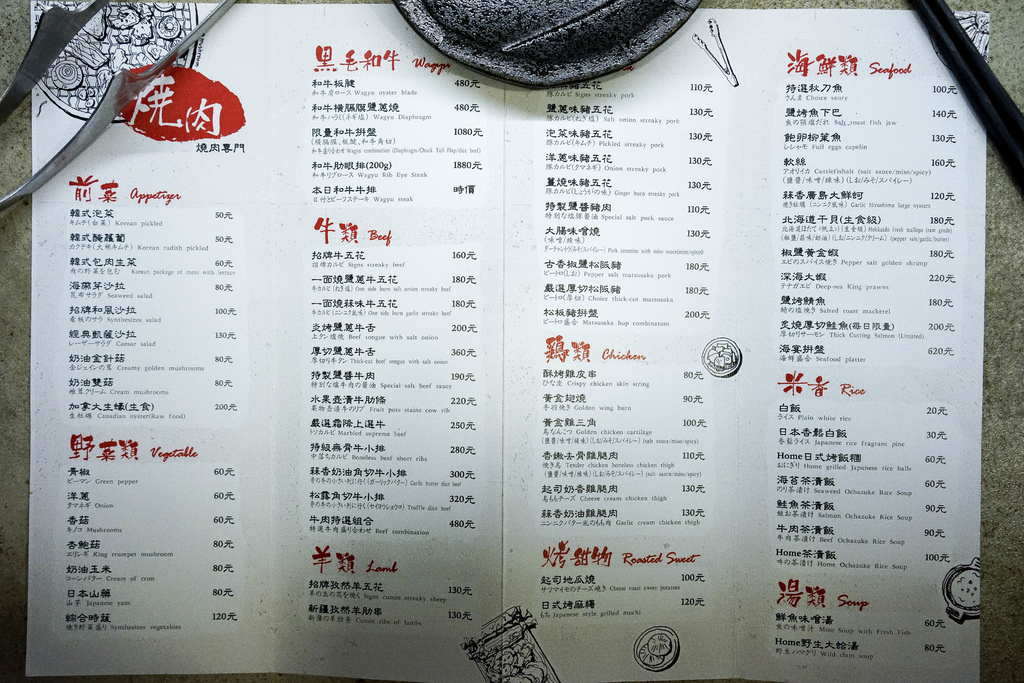 燒肉
燒肉專門
前菜 Appetizer
韓式泡菜 50元
キムチ(白菜) Korean pickled
韓式醃蘿蔔 50元
カクテキ(大根キムチ) Korean radish pickled
韓式包肉生菜 60元
肉の野菜を包む Korean package of meat with lettuce
海帶芽沙拉 80元
昆布サラダ Seaweed salad
招牌和風沙拉 100元
看板のサラ Synthesizes salad
經典凱薩沙拉 130元
レーザーサラダ Caesar salad
奶油金針菇 80元
金ジェインの茸 Creamy golden mushrooms
奶油雙菇 80元
椎茸クリーム Cream mushrooms
加拿大生蠔(生食) 200元
生牡蠣 Canadian oyster(Raw food)
野菜類 Vegetable
青椒 60元
ピーマン Green pepper
洋蔥 60元
タマネギ Onion
香菇 60元
キノコ Mushrooms
杏鮑菇 80元
エリンギ King trumpet mushroom
奶油玉米 80元
コーンバター Cream of cron
日本山藥 80元
山芋 Japanese yam
綜合時蔬 120元
焼き野菜盛り Synthesizes vegetables
黑毛和牛 Wagyu
和牛板腱 480元
和牛肩ロース Wagyu oyster blade
和牛橫膈膜鹽蔥燒 480元
和牛ハラミ(ネギ塩) Wagyu Diaphragm
限量和牛拼盤 1080元
(橫膈膜、板腱、和牛角切)
和牛盛り合わせ Wagyu combination (Diaphragm/Chuck Tail Flap/dice beef)
和牛肋眼排(200g) 1880元
和牛リブロース Wagyu Rib Eye Steak
本日和牛牛排 時價
日付とビーフステーキ Wagyu steak
牛類 Beef
招牌牛五花 160元
招牌カルビ Signs streaky beef
一面燒鹽蔥牛五花 180元
牛カルビ(ねぎ塩) One side burn salt onion streaky beef
一面燒蒜味牛五花 180元
牛カルビ(ニンニク風味) One side burn garlic streaky beef
炎烤鹽蔥牛舌 200元
上タン塩焼 Beef tongue with salt onion
厚切鹽蔥牛舌 360元
厚切り牛タン Thick-cut beef tongue with salt onion
特製鹽醬牛肉 190元
特別な塩牛肉の醤油 Special salt beef sauce
水果壺漬牛肋條 220元
果物壺漬牛のリブ Fruit pots stains cow rib
嚴選霜降上選牛 250元
トソカルビ Marbled supreme beef
特級無骨牛小排 280元
中落ちカルビ Boneless beef short ribs
蒜香奶油角切牛小排 300元
牛の牛の小さい列に行く(ガーリックバター) Garlic butter dice beef
松露角切牛小排 320元
牛の牛の小さい列に行く(セイヨウショウロ) Truffle dice beef
牛肉特選組合 480元
特選牛肉盛り合わせ Beef combination
羊類 Lamb
招牌孜然羊五花 130元
羊の五の花を焼く Signs cumin streaky sheep
新疆孜然羊肋串 130元
新疆の羊肋素 Cumin ribs of lambs
豬五花 110元
豚カルビ Signs streaky pork
鹽蔥味豬五花 130元
豚カルビ(ねぎ塩) Salt onion streaky pork
泡菜味豬五花 130元
豚カルビ(キムチ) Pickled streaky pork
洋蔥味豬五花 130元
豚カルビ(タマネギ) Onion streaky pork
薑燒味豬五花 130元
豚カルビ(しょうがの味) Ginger burn streaky pork
特製鹽醬豬肉 110元
特別な塩豚醤油 Special salt pork sauce
大腸味噌燒 130元
(味噌/辣味)
ダーチャントウ(みそ/スパイシー) Pork intestine with miso sauce(miso/spicy)
古香椒鹽松阪豬 180元
ピートロ(しお) Pepper salt matsusaka pork
嚴選厚切松阪豬 180元
ピートロ(厚切) Choice thick-cut matsusaka
松板豬拼盤 200元
ピートロ盛合 Matsusaka hop combination
鷄類 Chicken
酥烤雞皮串 80元
ひな皮 Crispy chicken skin string
黃金翅燒 90元
手羽焼き Golden wing burn
黃金雞三角 90元
鳥なんこつ Golden chicken cartilage
(鹽醬/味噌/辣味)(しお/みそ/スパイシー) (salt sauce/miso/spicy)
香嫩去骨雞腿肉 110元
焼き鳥 Tender chicken boneless chicken thigh
(鹽醬/味噌/辣味)(しお/みそ/スパイシー) (salt sauce/miso/spicy)
起司奶香雞腿肉 130元
鳥ももチーズ Cheese cream chicken thigh
蒜香奶油雞腿肉 130元
ニンニクバター風のもも肉 Garlic cream chicken thigh
烤甜物 Roasted Sweet
起司地瓜燒 100元
サツマイモのチーズ焼き Cheese roast sweet potatoes
日式烤麻糬 120元
もち Japanese style grilled mochi
海鮮類 Seafood
特選秋刀魚 100元
さんま Choice saury
鹽烤魚下巴 140元
魚の顎塩だれ Salt roast fish jaw
飽卵柳葉魚 130元
シシャモ Full eggs capelin
軟絲 160元
アオリイカ Cuttlefishalt (salt sauce/miso/spicy)
(鹽醬/味噌/辣味)(しお/みそ/スパイシー)
蒜香廣島大鮮蚵 120元
焼き牡蠣 (ニンニク風味) Garlic Hiroshima large oysters
北海道干貝(生食級) 180元
北海道ほたて(帆立)(生食級) Hokkaido fresh scallops (raw grade)
(椒鹽/蒜味/奶油)(しお/ニンニク/クリーム) (pepper salt/garlic/butter)
椒鹽黃金蝦 180元
エビのスパイス焼き Pepper salt golden shrimp
深海大蝦 220元
テナガエビ Deep-sea King prawns
鹽烤鯖魚 180元
鯖の塩焼き Salted roast mackerel
炙燒厚切鮭魚(每日限量) 200元
厚切りサーモン Thick Cutting Salmon (Limited)
海宴拼盤 620元
海鮮盛合 Seafood platter
米香 Rice
白飯 20元
ライス Plain white rice
日本香鬆白飯 30元
香鬆ライス Japanese rice fragrant pine
Home日式烤飯糰 60元
おにぎり Home grilled Japanese rice balls
海苔茶漬飯 80元
のり茶漬け Seaweed Ochazuke Rice Soup
鮭魚茶漬飯 90元
鮭お茶漬け Salmon Ochazuke Rice Soup
牛肉茶漬飯 90元
牛肉茶漬け Beef Ochazuke Rice Soup
Home茶漬飯 100元
味の茶漬け Home Ochazuke Rice Soup
湯類 Soup
鮮魚味噌湯 60元
魚の味噌汁 Miso Soup with Fresh Fish
Home野生大蛤湯 80元
野生ハマグリ Wild clam soup